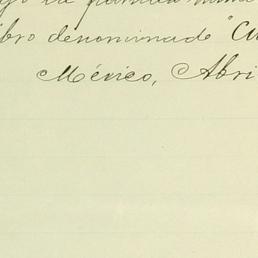 la
ibro denominado "Cu
México, Abri